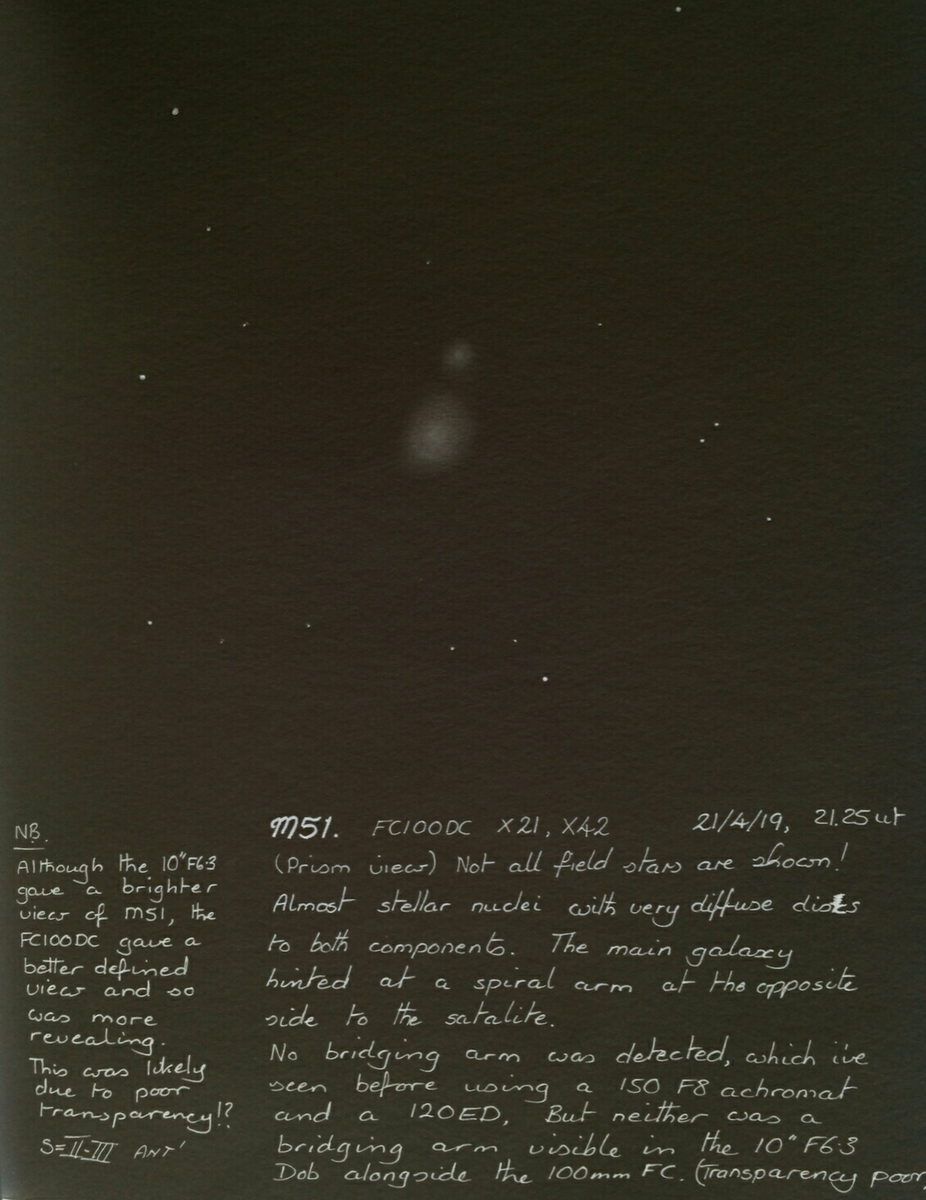 NB.
Although the 10" F6.3
gave a brighter
view of M51, the
FC100DC gave a
better defined
view and so
was more
revealing.
This was likely
due to poor
transparency!?
S=II-III ANT'
M51. FC100DC X21, X42 21/4/19, 21.25 ut
(Prism view) Not all field stars are shown!
Almost stellar nuclei with very diffuse disks
to both components. The main galaxy
hinted at a spiral arm at the opposite
side to the satalite.
No bridging arm was detected, which i've
seen before using a 150 F8 achromat
and a 120ED, But neither was a
bridging arm visible in the 10" F6.3
Dob alongside the 100mm FC. (Transparency poor)